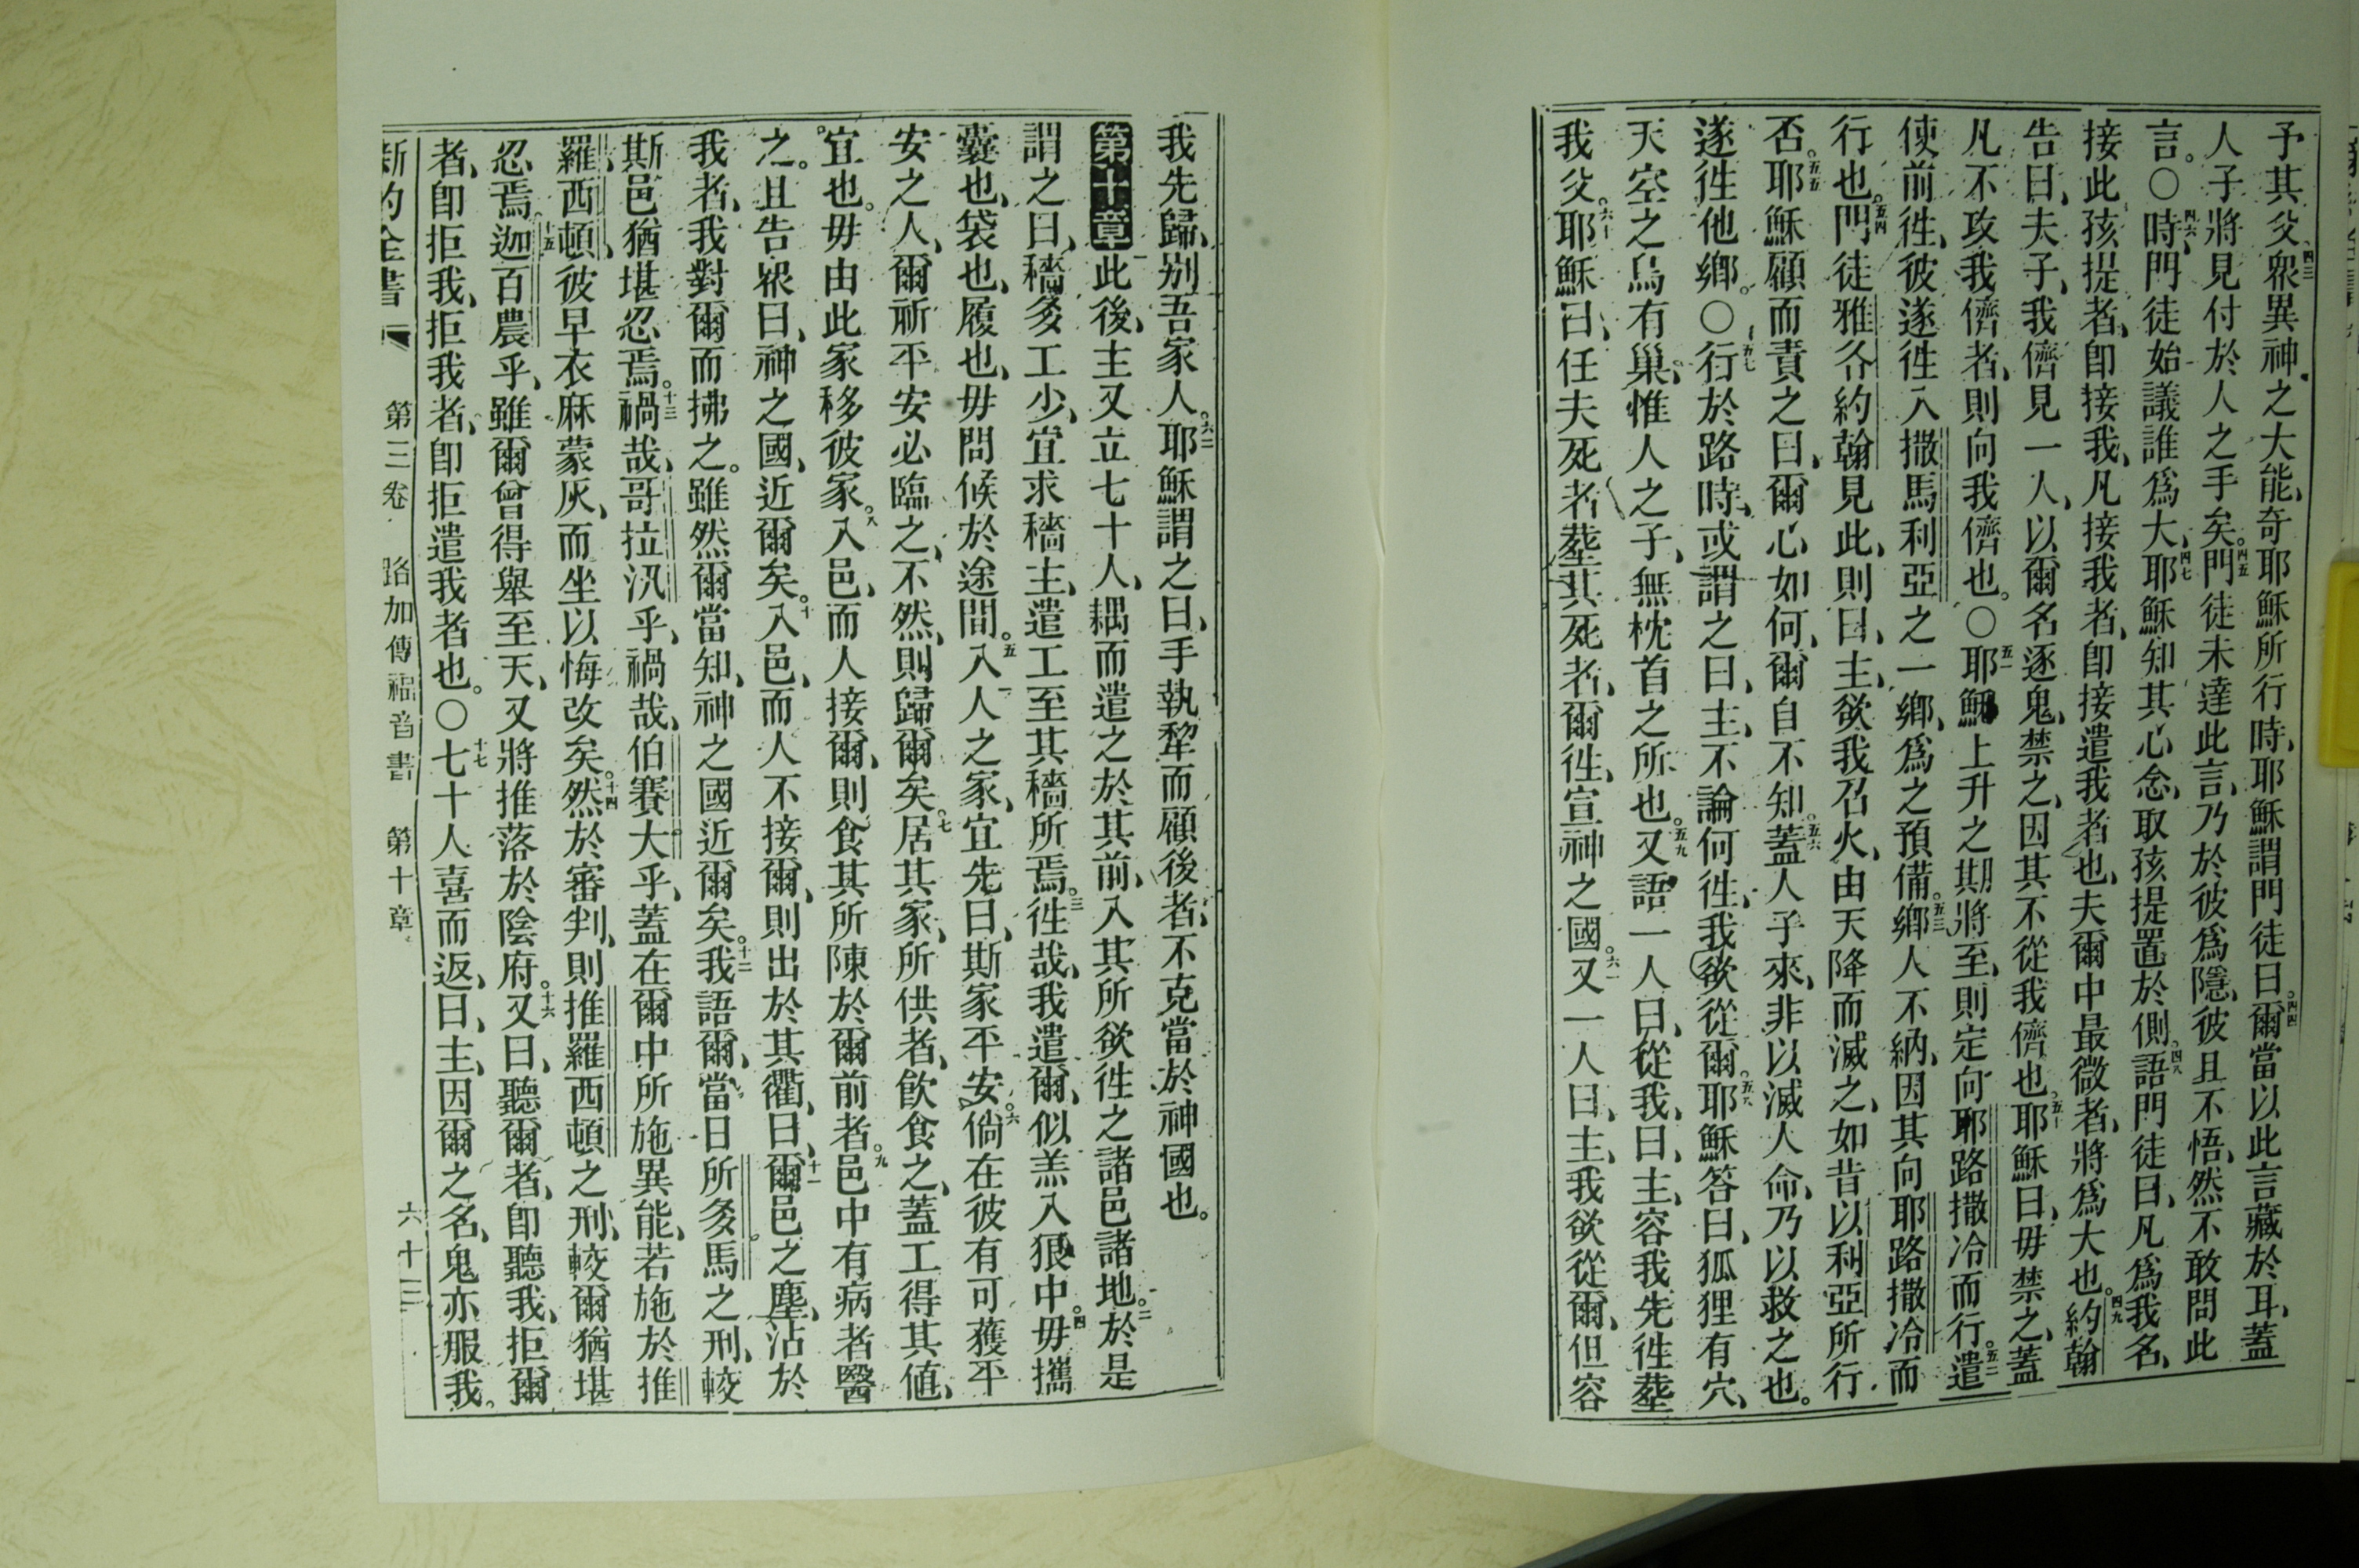 予其父四三衆異神之大能、奇耶穌所行時、耶穌謂門徒曰。四四爾當以此言藏於耳、蓋
人子將見付於人之手矣。四五門徒未達此言、乃於彼爲隱、彼且不悟、然不敢問此
言。〇四六時、門徒始議誰爲大、四七耶穌知其心念、取孩提置於側。四八語門徒曰、凡爲我名、
接此孩提者、卽接我、凡接我者、卽接遣我者也、夫爾中最微者、將爲大也。四九約翰
告曰、夫子、我儕見一人、以爾名逐鬼、禁之、因其不從我儕也。五十耶穌曰、毋禁之、蓋
凡不攻我儕者、則向我儕也。〇五一耶穌上升之期將至、則定向耶路撒冷而行。五二遣
使前徃、彼遂徃入撒馬利亞之一鄕、爲之預備。五三鄕人不納、因其向耶路撒冷而
行也。五四門徒雅各約翰見此、則曰、主、欲我召火、由天降而滅之、如昔以利亞所行
否。五五耶穌顧而責之曰、爾心如何、爾自不知。五六蓋人子來、非以滅人命、乃以救之也。
遂徃他鄕。〇五七行於路時、或謂之曰、主、不論何徃、我欲從爾。五八耶穌答曰、狐狸有穴、
天空之鳥有巢、惟人之子、無枕首之所也。五九又語一人曰、從我、曰、主、容我先徃塟
我父。六十耶穌曰、任夫死者塟其死者、爾徃、宣神之國。六一又一人曰、主、我欲從爾、但容
我先歸、别吾家人。六二耶穌謂之曰、手執犂而顧後者、不克當於神國也。
第十章一此後、主又立七十人、耦而遣之於其前、入其所欲徃之諸邑諸地。二於是
謂之曰、穡多工少、宜求穡主、遣工至其穡所焉。三徃哉、我遣爾、似羔入狼中。四毋攜
囊也、袋也、履也、毋問候於途間。五入人之家、宜先曰、斯家平安。六倘在彼有可獲平
安之人、爾祈平安必臨之、不然、則歸爾矣。七居其家、所供者、飮食之、蓋工得其値、
宜也。毋由此家移彼家。八入邑、而人接爾、則食其所陳於爾前者。九邑中有病者醫
之。且告衆曰、神之國、近爾矣。十入邑、而人不接爾、則出於其衢、曰、十一爾邑之塵、沾於
我者、我對爾而拂之。雖然爾當知、神之國近爾矣。十二我語爾、當日所多馬之刑、較
斯邑猶堪忍焉。十三禍哉、哥拉汛乎、禍哉、伯賽大乎、蓋在爾中所施異能、若施於推
羅西頓、彼早衣麻蒙灰、而坐以悔改矣。十四然於審判、則推羅西頓之刑、較爾猶堪
忍焉。十五迦百農乎、雖爾曾得舉至天、又將推落於陰府。十六又曰、聽爾者、卽聽我、拒爾
者、卽拒我、拒我者、卽拒遣我者也。〇十七七十人喜而返、曰、主、因爾之名、鬼亦服我。
新約全書 第三卷 路加傳福音書 第十章 六十三